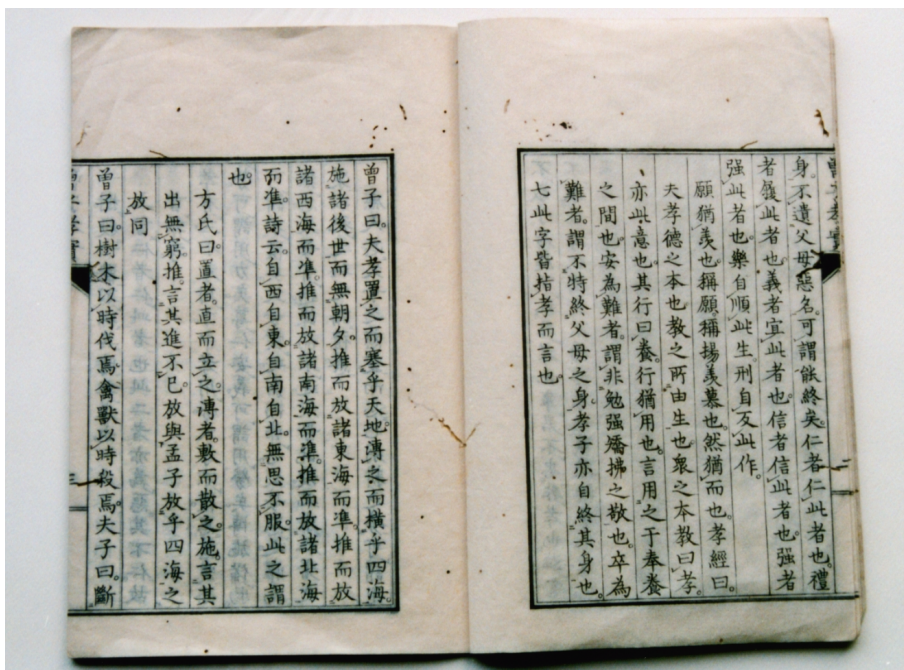 身。不遺父母惡名。可謂能終矣。仁者仁此者也。禮
者履此者也。義者宜此者也。信者信此者也。强者
强此者也。樂自順此生。刑自反此作。
願猶羨也。稱願。稱揚羨慕也。然猶而也。孝經曰。
夫孝德之本也。教之所由生也。衆之本教曰孝。
亦此意也。其行曰養。行猶用也。言用之于奉養
之間也。安為難者。謂非勉强矯拂之敬也。卒為
難者。謂不特終父母之身。孝子亦自終其身也。
七此字皆指孝而言也
曾子曰。夫孝置之而塞乎天地。溥之而橫乎四海。
施諸後世而無朝夕。推而放諸東海而準。推而放
諸西海而準。推而放諸南海而準。推而放諸北海
而準。詩云。自西自東。自南自北。無思不服。此之謂
也。
方氏曰。置者。直而立之。溥者。敷而散之。施。言其
出無窮。推。言其進不已。放與孟子放乎四海之
放同
曾子曰。樹木以時伐焉。禽獸以時殺焉。夫子曰。斷